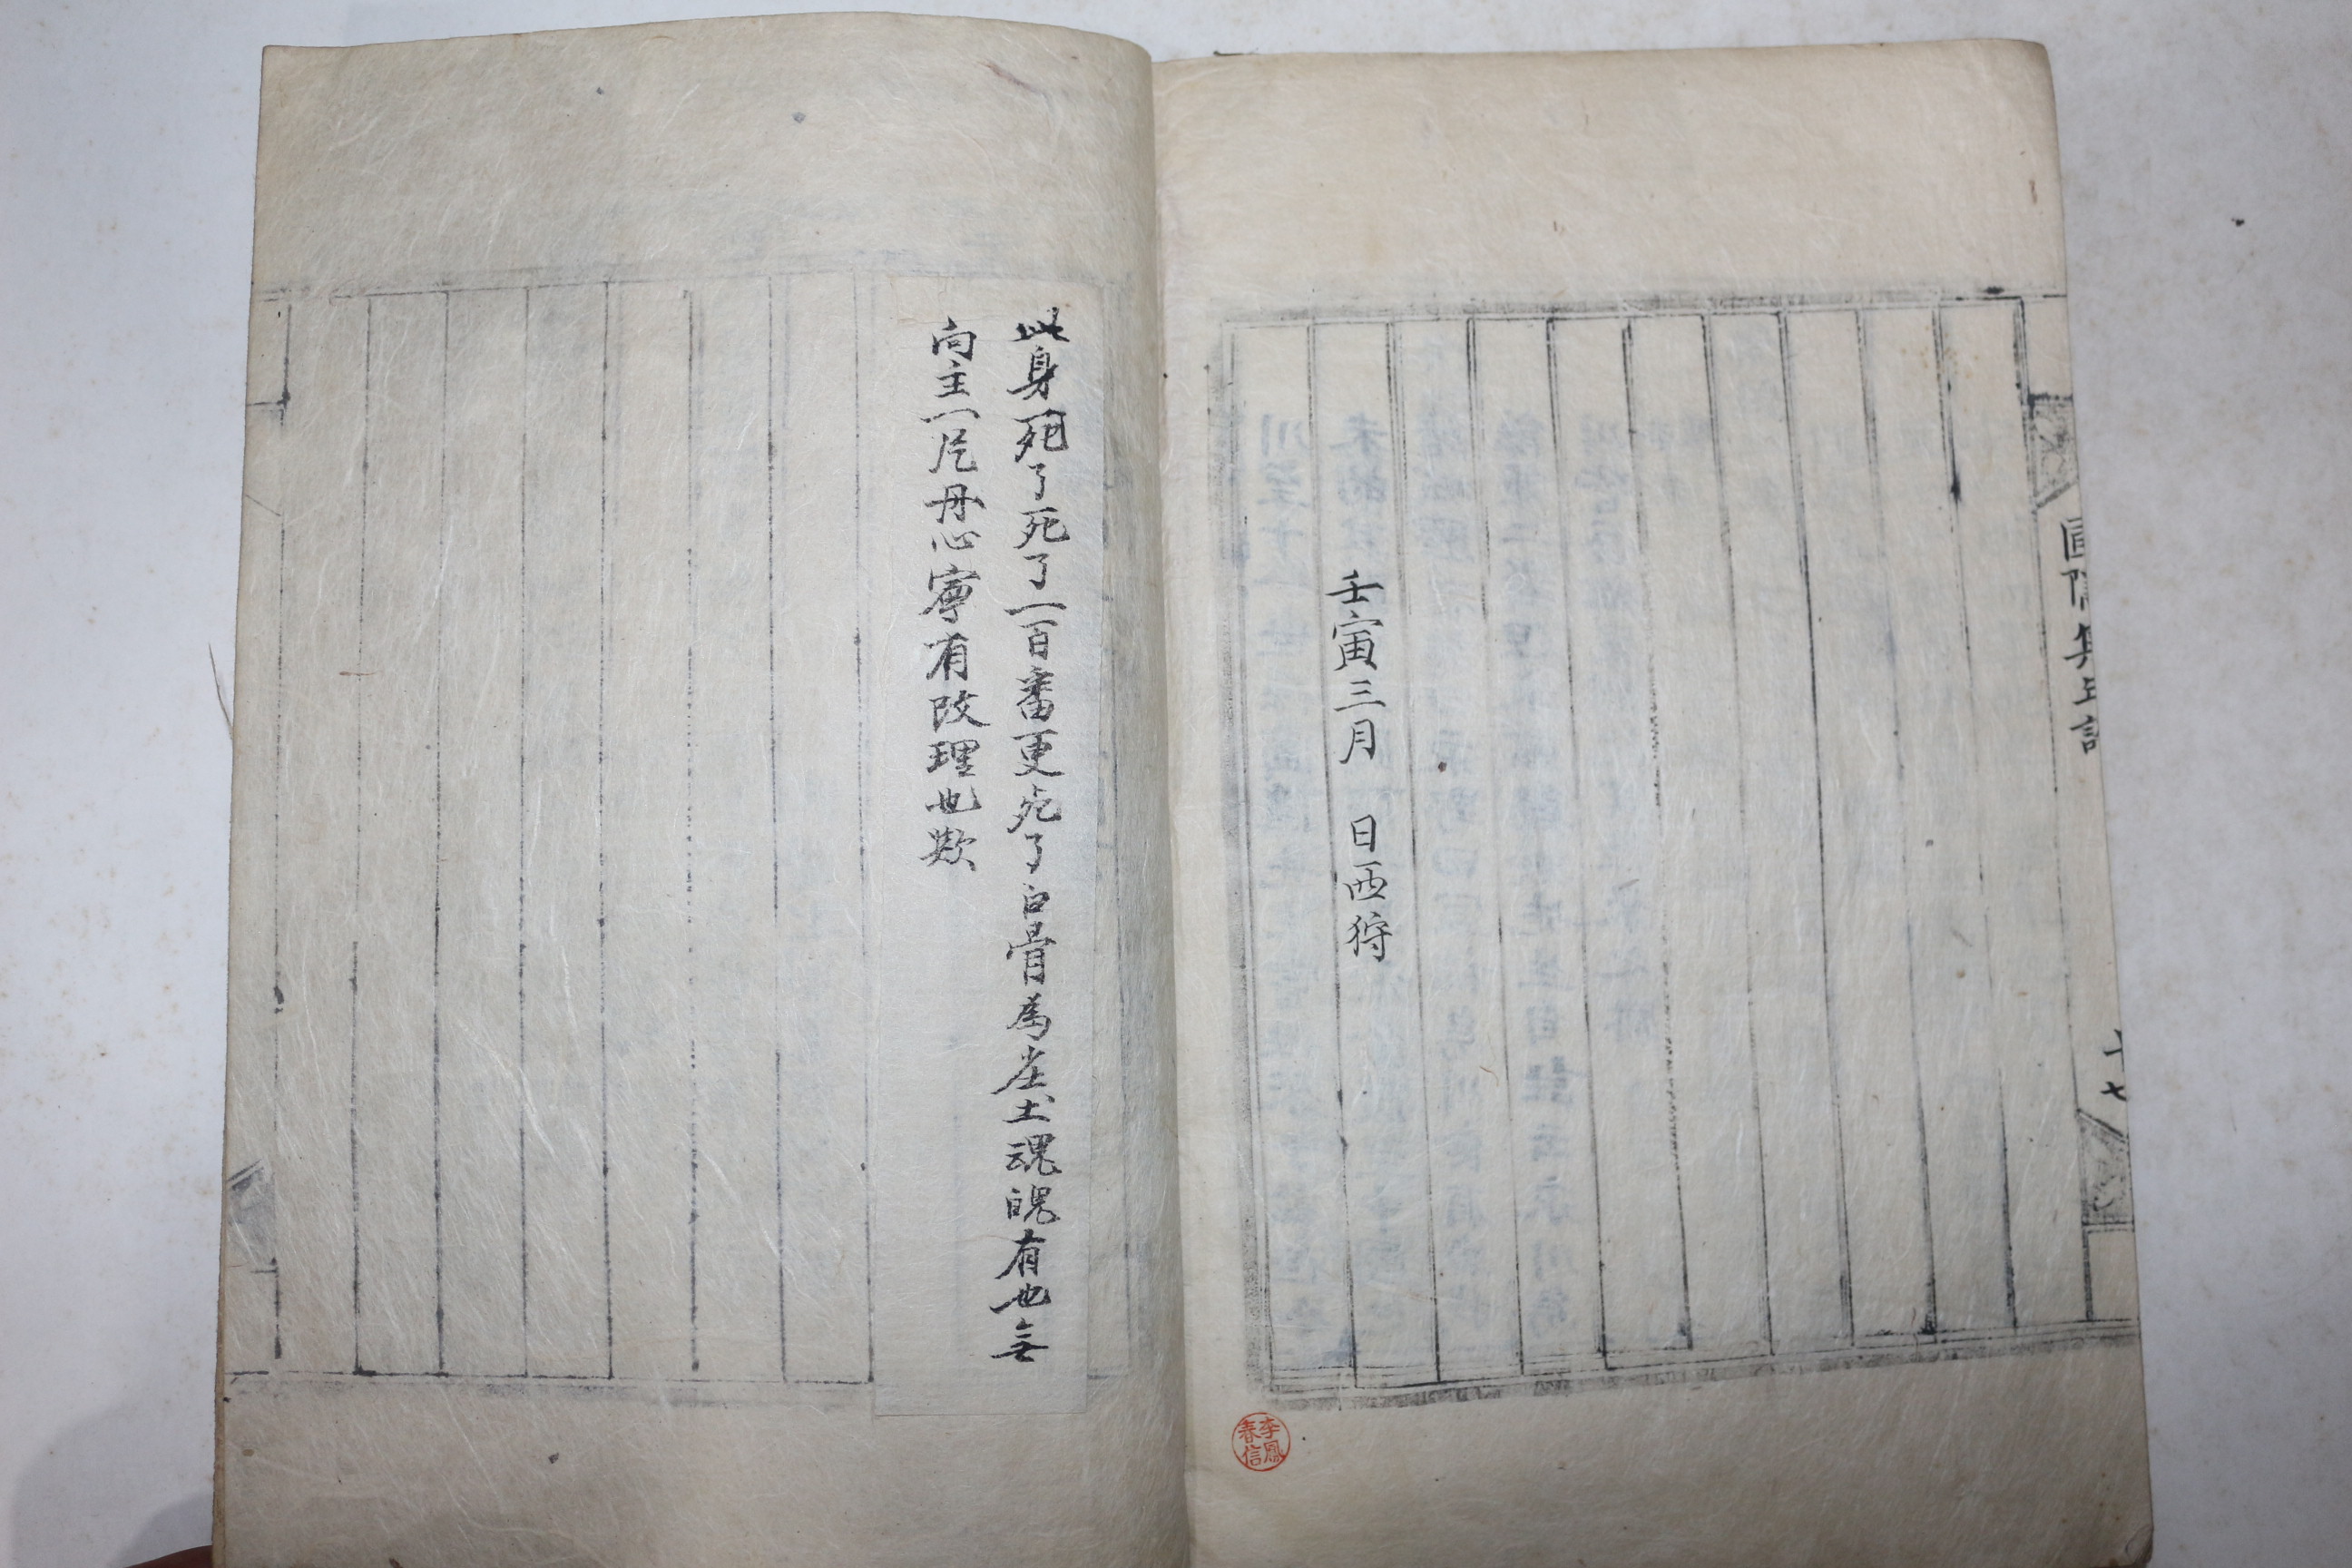 圃隱集年譜
十七
壬寅三月 日西狩
李鳳春信
此身死了死了一百番更死了白骨為塵土魂魄有也無
向主一片丹心寧有改理也歟